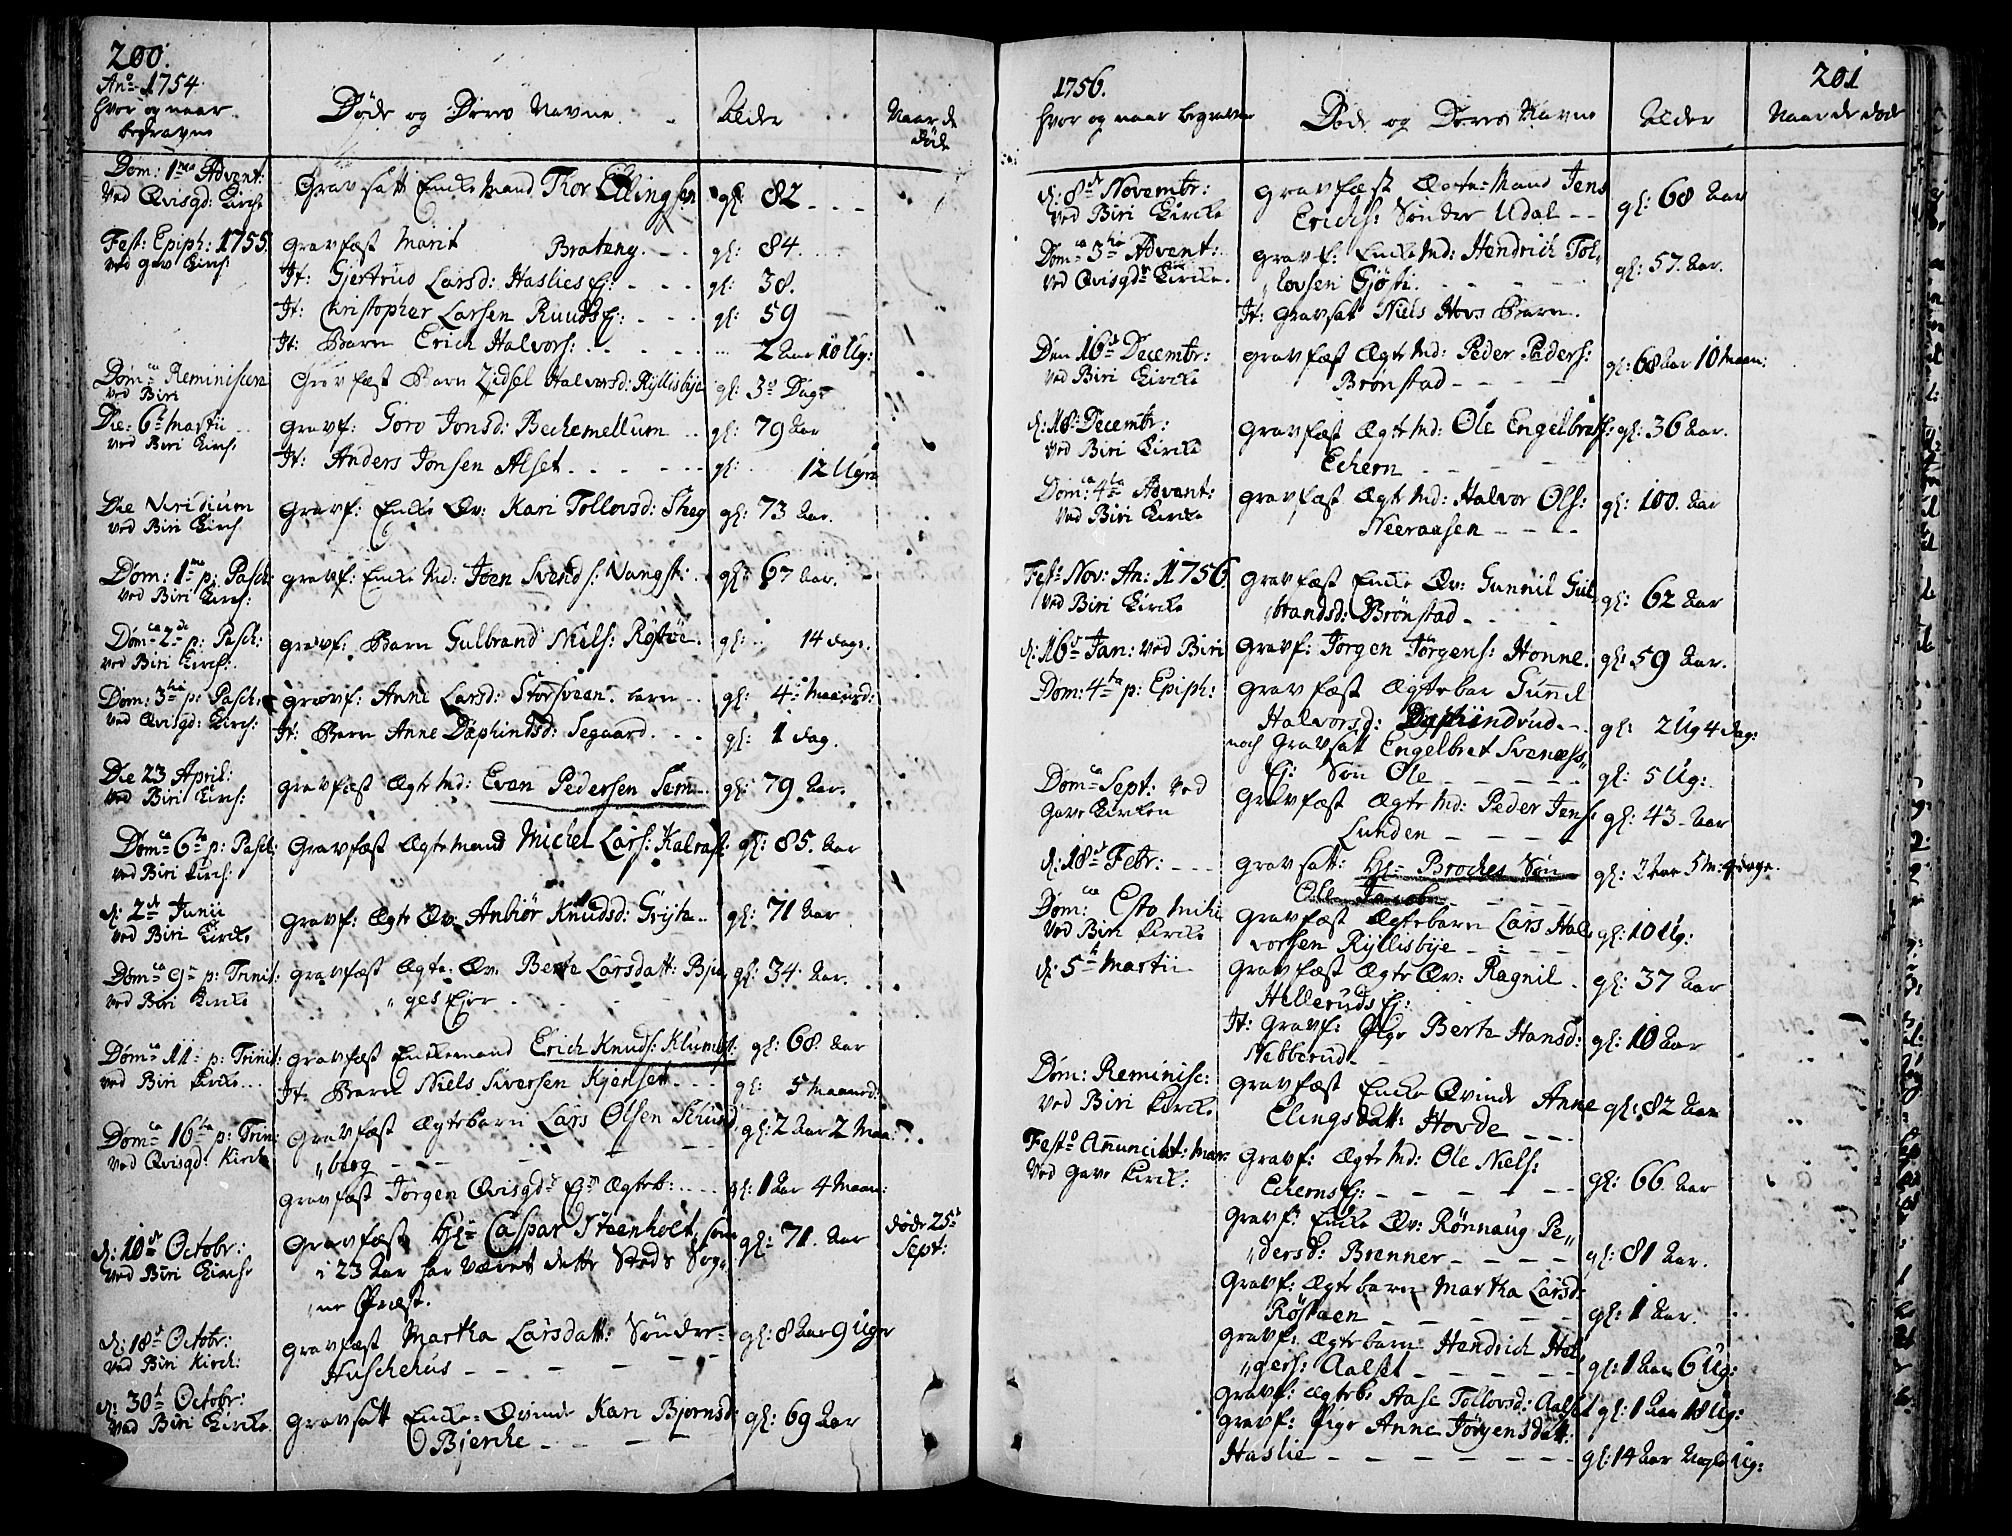 200.
Ano 1754
Hvor og naar
begravne
Døde og Deres Navne.
Alder
Naar de
døde
Dom: 1ma Advent:
Ved Qvisgd: Kirche
Gravsatt Enke Mand Thor Ellingsen
gl: 82
Fest: Epiph: 1755.
ved Gav Kirch:
gravfæst Marit Brateng.
gl: 84.
It: Gjertrud Larsd: Haslies Ej:
gl: 38.
It: Christopher Larsen Ruuds Ej:
gl: 59
It: Barn Erich Halvors:
2 Aar 10 Ug:
Domca Reminiscere
ved Biri
Gravfæst Barn Zidsel Halvorsd: Ryllisbye
gl: 3 Dag:
Die: 6 Martii
ved Biri Kirch:
gravf: Goro Jonsd: Bechemellum
gl: 79 Aar
It: Anders Jonsen Alset
gl: 12 Ugr:
Die Viridium
ved Biri Kirch
gravf: Enke Qv: Kari Tollovsd: Skeg
gl: 73 Aar.
Dom: 1ma p: Pasch:
ved Biri Kirch:
gravf: Enke Md: Joen Svends: Vangst:
gl: 67 Aar.
Domca 2de p: Pasch:
ved Biri Kirch:
gravf: Barn Gulbrand Niels: Røstøe
gl: 14 dage.
Dom: 3tia p: Pasch:
ved Qvisgd: Kirch:
gravf: Anne Larsd: Storsveen barn
gl: 4 Maaned:
It: Barn Anne Daphindsd: Segaard
gl: 1 dag.
Die 23 April:
ved Biri Kirch:
gravfæst Ægte Md: Even Pedersen Sem
gl: 79 Aar.
Domca 6ta p: Pasch:
ved Biri Kirch:
Gravfæst Ægte Mand Michel Lars: Kalrast
gl: 85. Aar
d: 2d Junii
ved Biri Kirche
gravf: Ægte Qv: Anbiør Knudsd: Grytz
gl: 71 Aar
Domca 9 p: Trinit:
ved Biri Kirche
gravfæst Ægte Qv: Berte Larsdatt: Bjer
gl: 34 Aar.
"ges Ejer
Domca 11 p: Trinit:
ved Biri Kirche
gravfæst Enckemand Erich Knuds: Klumbst:
gl: 68 Aar
It: Barn Niels Siversen Kjenset
gl: 5 Maaned:
Domca 16ta p: Trin:
ved Qvisgd: Kirch
gravfæst Ægtebarn Lars Olsen Skind
gl: 2 Aar 2 Maa:
"berg
gravfæst Jørgen Qvisgds Ejr Ægteb:
gl: 1 Aar 4 Maan:
d: 10d Octobr:
ved Biri Kirche
Gravfæst Hr Caspar Steenholt, som
gl: 71. Aar
døde 25
Sept:
i 23 Aar har været dette Steds Sog
"ne Præst.
d: 18 Octobr:
ved Biri Kirch:
gravfæst Martha Larsdatt: Sønder
gl: 8 Aar 9 Uger
Huschehus
d: 30 Octobr:
ved Biri Kirche
gravsatt Enke-Qvinde Kari Bjørnsd:
gl: 69 Aar
Bjerche
1756.
201
Hvor og naar begravne
Døde og Deres Navne
Alder
Naar de døde
d: 8d Novembr:
ved Biri Kircke
gravfæst Ægte-Mand Jens
gl: 68 Aar
Erichs: Sønder Udal
Domca 3tia Advent:
ved Qvisgds Kirche.
gravf: Enke Md: Hendrich Tol,
gl: 57. Aar.
"lovsen Gjøsti
It: gravsat Niels Hovs Barn.
Den 16d Decembr:
ved Biri Kircke
gravfæst Ægte Md: Peder Peders:
gl: 68 Aar 10 Maan:
Brønstad
d: 18: Decembr:
ved Biri Kircke
gravfæst Ægte Md: Ole Engelbret:
gl: 36 Aar.
Echern
Domca 4ta Advent:
ved Biri Kircke
gravfæst Ægte Md: Halvor Ols:
gl: 100. Aar
Neeraasen
Fest: Nov: An: 1756.
ved Biri Kircke
gravfæst Enke Qv: Gunnil Gul
gl: 62 Aar
"brandsd: Brønstad
d: 16d Jan: ved Biri
gravf: Jørgen Jørgens: Honne.
gl: 59 Aar.
Dom: 4ta p: Epiph:
gravfæst Ægtebar Gunnil
Halvorsd: Daphindrud
gl: 2 Ug 4 dag:
noch gravsatt Engelbret Svenæss,
Ej: Søn Ole
gl: 5 Ug:
Domca Sept: ved
Gave Kircken
gravfæst Ægte Md: Peder Jens:
gl: 43 Aar
Lunden
d: 18d Febr:
gravsatt: Hr Broches Søn
gl: 2 Aar 5 M: 4 dage.
Ole Jacob
Dom: ca Esto Mihi
ved Biri Kircke
gravfæst Ægtebarn Lars Hal
gl: 10 Ug:
vorsen Ryllisbye
d: 5t Martii
gravfæst Ægte Qv: Ragnil
gl: 37 Aar
Helleruds Ej:
It: gravf: Pige Berte Hansd:
gl: 10 Aar
Nebberud
Dom: Reminisc:
ved Biri Kircke
gravfæst Encke Qvinde Anne
gl: 82 Aar
Elingsdatt: Hovde
Festo Annunciat: Mar:
ved Gave Kirck:
gravf: Ægte Md: Ole Niels:
Echerns Ej:
gl: 66 Aar
gravf: Encke Qv: Rønnaug Pe,,
"dersd: Brenner
gl: 81 Aar.
gravf: Ægtebarn Martha Larsd:
Røstaen
gl: 1 Aar.
gravf: Ægtebarn Hendrich Hol
"gers: Aalset
gl: 1 Aar 6 Ug:
gravf: Ægteb: Aase Tollovsd: Aalset
gl: 1 Aar 18 Ug:
gravf: Pige Anne Jørgensdatt:
Haslie
gl: 14 Aar Ug: